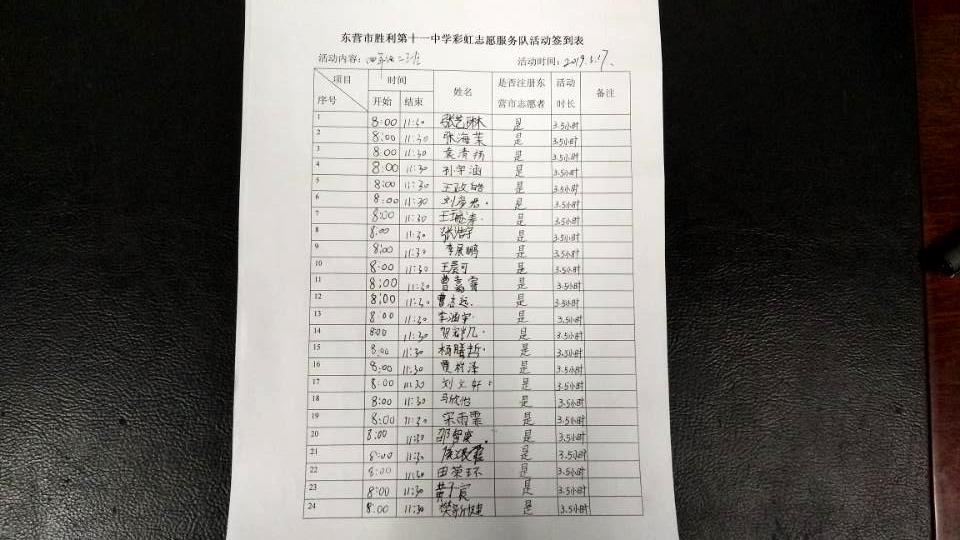 东营市胜利第十一中学彩虹志愿服务队活动签到表
活动内容：四年级二班 活动时间：2019.3.17.
项目 时间 姓名 是否注册东营市志愿者 活动时长 备注
序号 开始 结束
1 8:00 11:30 张艺琳 是 3.5小时
2 8:00 11:30 张海茉 是 3.5小时
3 8:00 11:30 袁清扬 是 3.5小时
4 8:00 11:30 孙宇涵 是 3.5小时
5 8:00 11:30 王政皓 是 3.5小时
6 8:00 11:30 刘彦君 是 3.5小时
7 8:00 11:30 是 3.5小时
8 8:00 11:30 张浩宇 是 3.5小时
9 8:00 11:30 李展鹏 是 3.5小时
10 8:00 11:30 王晨可 是 3.5小时
11 8:00 11:30 是 3.5小时
12 8:00 11:30 曹志远 是 3.5小时
13 8:00 11:30 李涵宇 是 3.5小时
14 8:00 11:30 是 3.5小时
15 8:00 11:30 杨腾哲 是 3.5小时
16 8:00 11:30 贾祥泽 是 3.5小时
17 8:00 11:30 刘文轩 是 3.5小时
18 8:00 11:30 马欣怡 是 3.5小时
19 8:00 11:30 宋雨霏 是 3.5小时
20 8:00 11:30 是 3.5小时
21 8:00 11:30 是 3.5小时
22 8:00 11:30 田荣环 是 3.5小时
23 8:00 11:30 黄子宸 是 3.5小时
24 8:00 11:30 樊新健 是 3.5小时